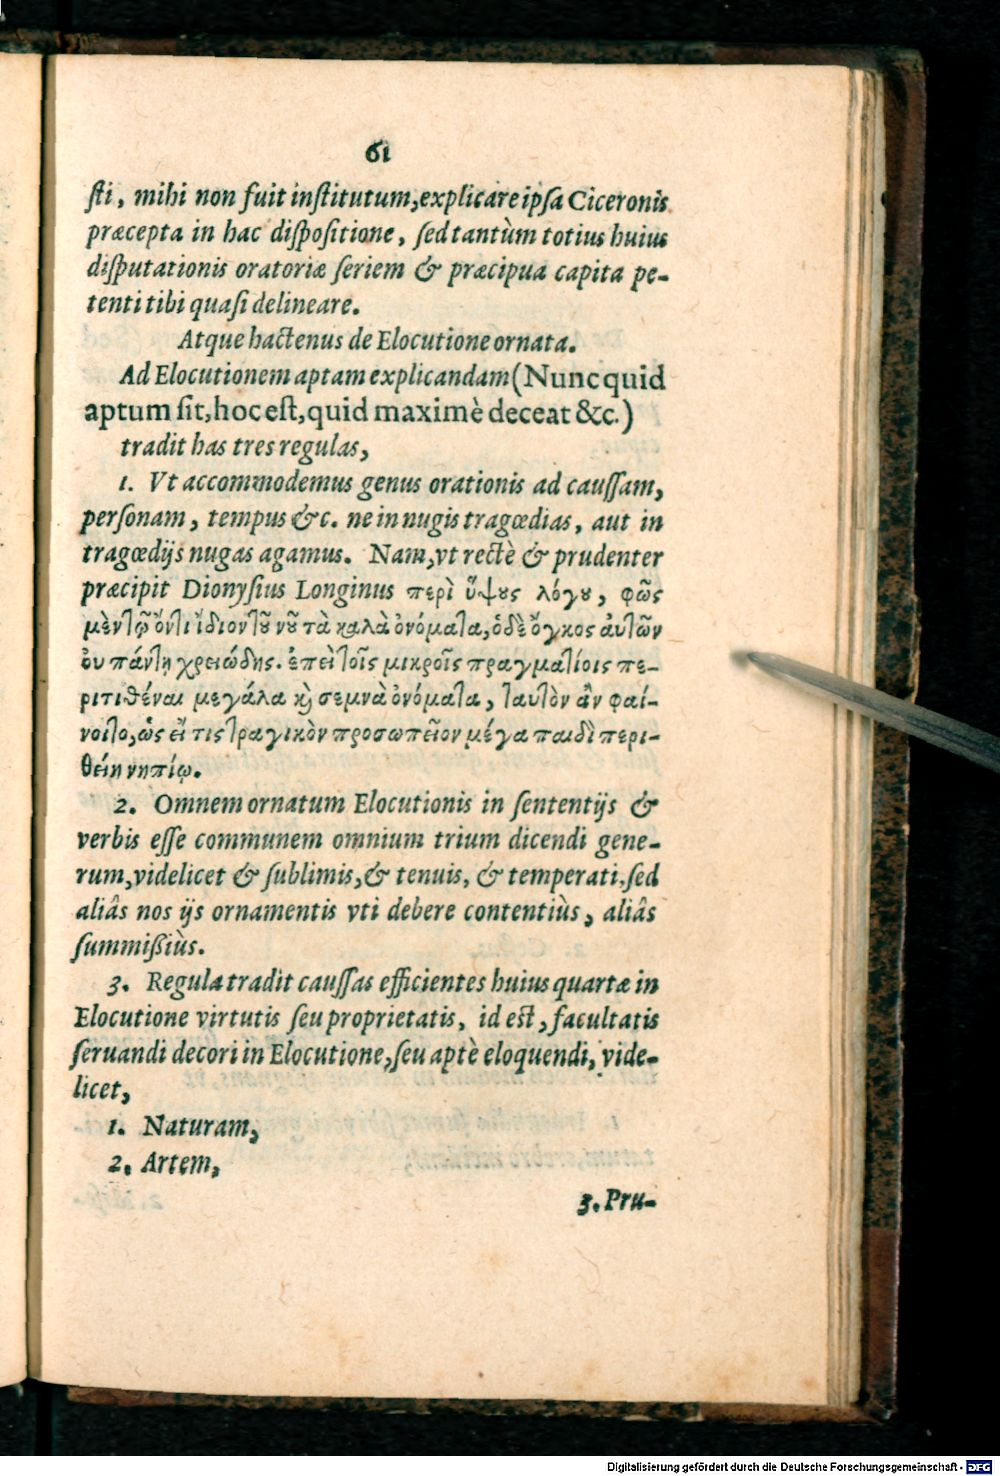 61
sti, mihi non fuit institutum, explicare ipsa Ciceronis
præcepta in hac dispositione, sed tantùm totius huius
disputationis oratoriæ seriem & præcipua capita pe-
tenti tibi quasi delineare.
Atque hactenus de Elocutione ornata.
Ad Elocutionem aptam explicandam (Nunc quid
aptum sit, hoc est, quid maximè deceat &c.)
tradit has tres regulas,
1. Vt accommodemus genus orationis ad caussam,
personam, tempus &c. ne in nugis tragœdias, aut in
tragœdijs nugas agamus. Nam, vt rectè & prudenter
præcipit Dionysius Longinus περὶ ὕψους λόγου, φῶς
μὲν τῷ ὄντι ἴδιον τοῦ νοῦ τὰ καλὰ ὀνόματα, ὁ δὲ ὄγκος ἀυτῶν
ὀυ πάντη χρειώδης. ἐπεὶ τοῖς μικροῖς πραγματίοις πε-
ριτιθέναι μεγάλα καὶ σεμνὰ ὀνόματα, ταυτὸν ἂν φαί-
νοιτο, ὡς εἴ τις τραγικὸν προσωπεῖον μέγα παιδὶ περι-
θείη νηπίῳ.
2. Omnem ornatum Elocutionis in sententijs &
verbis esse communem omnium trium dicendi gene-
rum, videlicet & sublimis, & tenuis, & temperati. sed
aliâs nos ijs ornamentis vti debere contentiùs, aliâs
summißiùs.
3. Regula tradit caussas efficientes huius quartæ in
Elocutione virtutis seu proprietatis, id est, facultatis
seruandi decori in Elocutione, seu aptè eloquendi, vide-
licet,
1. Naturam,
2. Artem,
3. Pru-
Digitalisierung gefördert durch die Deutsche Forschungsgemeinschaft - DFG